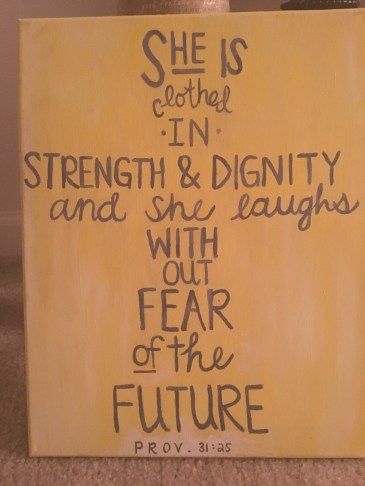 SHE IS
clothed
·IN·
STRENGTH & DIGNITY
and she laughs
WITH
OUT
FEAR
of the
FUTURE
PROV. 31:25